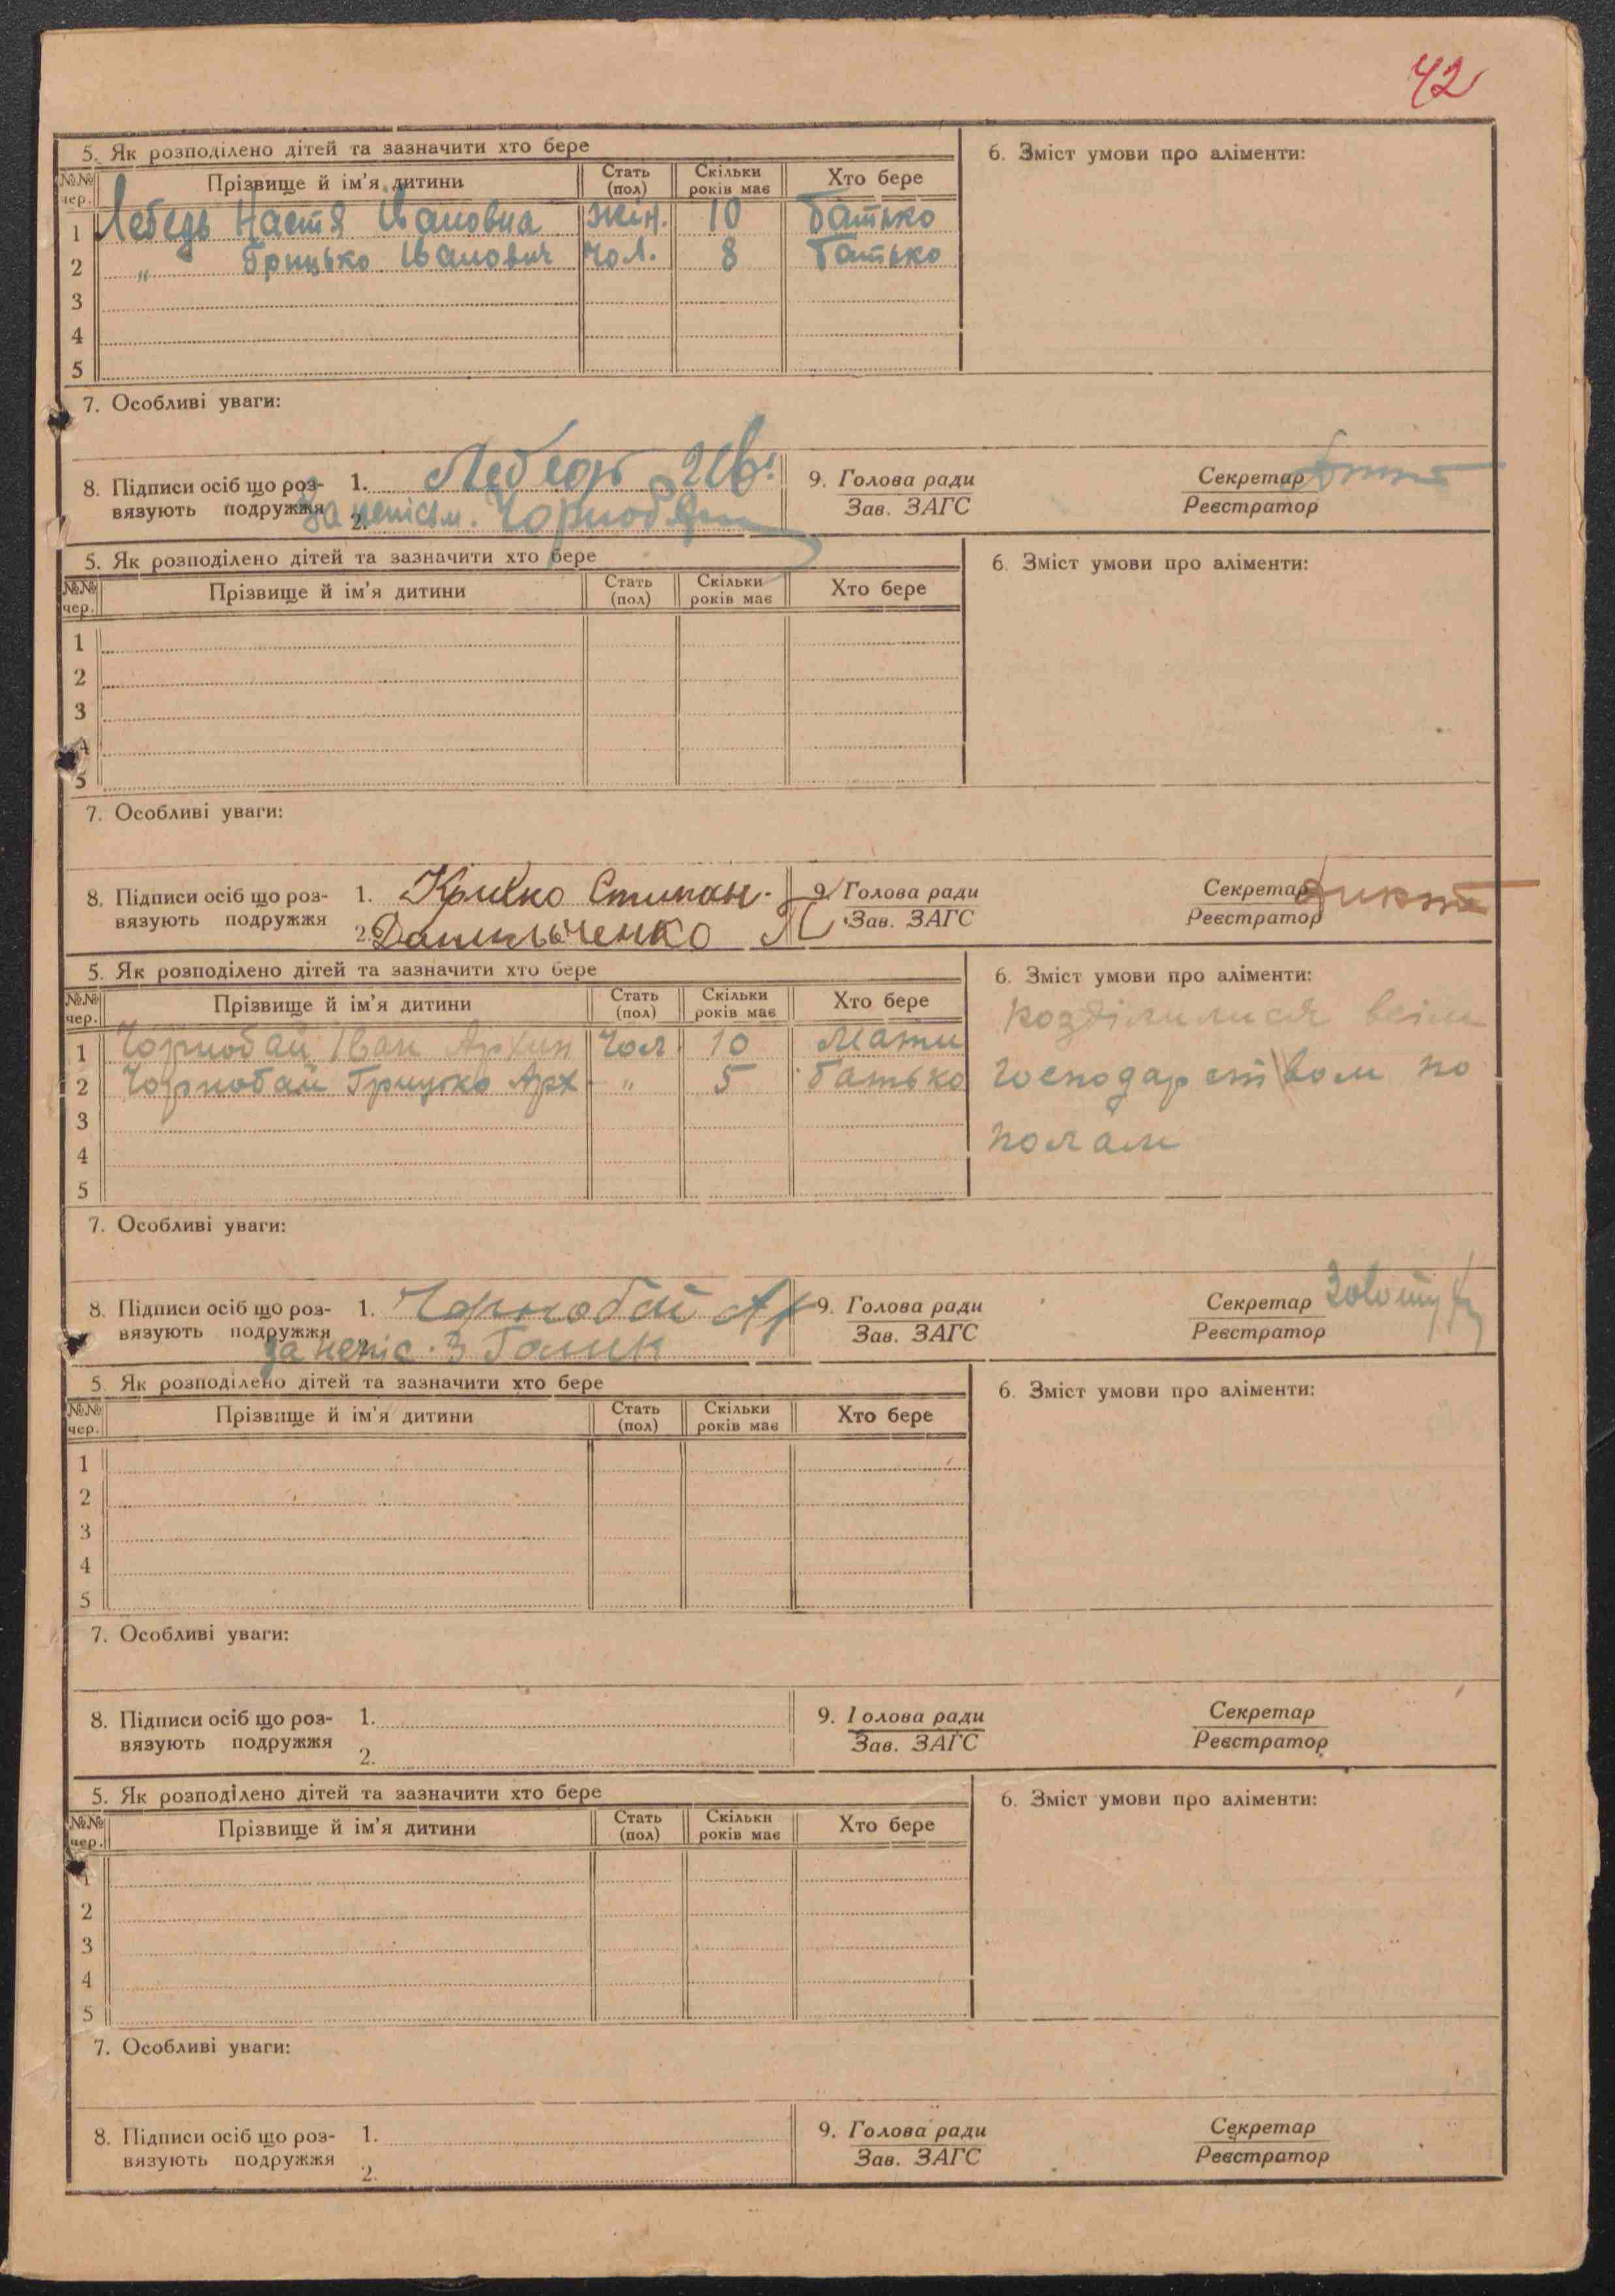 42
5. Як розподілено дітей та зазначити хто бере
6. Зміст умови про аліменти:
№№ чер.
Прізвище й ім'я дитини
Стать (пол)
Скільки років має
Хто бере
1 Лебедь Настя Івановна жін. 10 батько
2 „ Грицько Іванович чол. 8 батько
3
4
5
7. Особливі уваги:
8. Підписи осіб що роз-
вязують подружжя
1. Лебедь Ів.
2. За непісьм.
9. Голова ради
Зав. ЗАГС
Секретар
Реєстратор
5. Як розподілено дітей та зазначити хто бере
6. Зміст умови про аліменти:
№№ чер.
Прізвище й ім'я дитини
Стать (пол)
Скільки років має
Хто бере
1
2
3
4
5
7. Особливі уваги:
8. Підписи осіб що роз-
вязують подружжя
1. Степан
2. Данильченко М
9. Голова ради
Зав. ЗАГС
Секретар
Реєстратор
5. Як розподілено дітей та зазначити хто бере
6. Зміст умови про аліменти:
№№ чер.
Прізвище й ім'я дитини
Стать (пол)
Скільки років має
Хто бере
1 Чорнобай Іван Архип чол 10 Мати
2 Чорнобай Грицько Арх „ 5 батько
3
4
5
розділилися всім
господарством по
полам
7. Особливі уваги:
8. Підписи осіб що роз-
вязують подружжя
1. Чорнобай Ар
за непіс. З Галик
9. Голова ради
Зав. ЗАГС
Секретар
Реєстратор
5. Як розподілено дітей та зазначити хто бере
6. Зміст умови про аліменти:
№№ чер.
Прізвище й ім'я дитини
Стать (пол)
Скільки років має
Хто бере
1
2
3
4
5
7. Особливі уваги:
8. Підписи осіб що роз-
вязують подружжя
1.
2.
9. Голова ради
Зав. ЗАГС
Секретар
Реєстратор
5. Як розподілено дітей та зазначити хто бере
6. Зміст умови про аліменти:
№№ чер.
Прізвище й ім'я дитини
Стать (пол)
Скільки років має
Хто бере
1
2
3
4
5
7. Особливі уваги:
8. Підписи осіб що роз-
вязують подружжя
1.
2.
9. Голова ради
Зав. ЗАГС
Секретар
Реєстратор